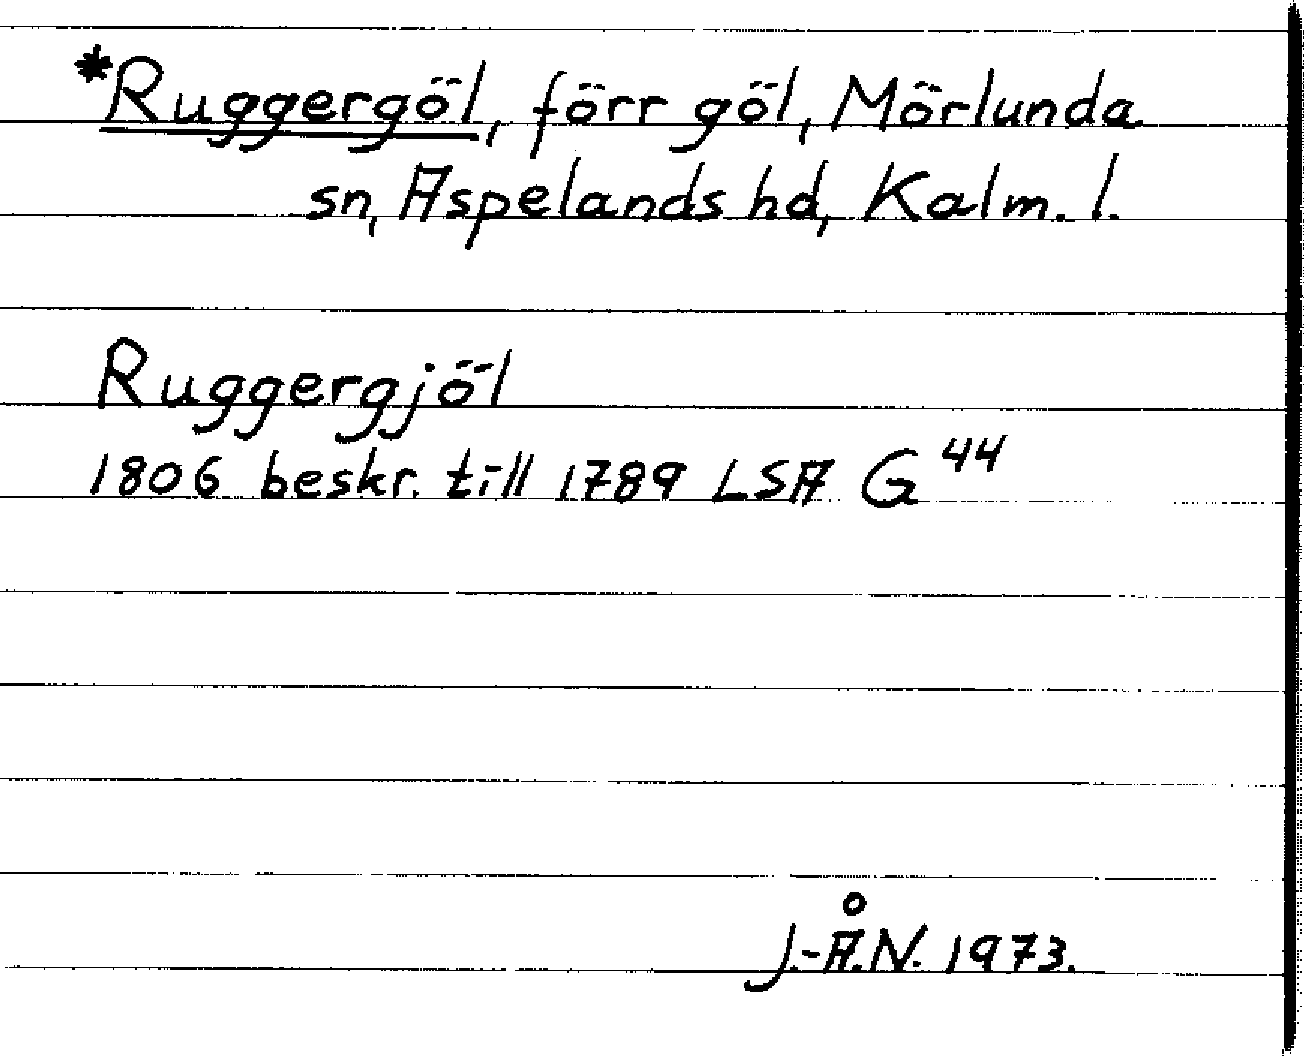 *Ruggergöl, förr göl, Mörlunda
sn, Aspelands hd, Kalm. l.
Ruggergjöl
1806 beskr. till 1789 LSA G 44
J.-Å.N. 1973.